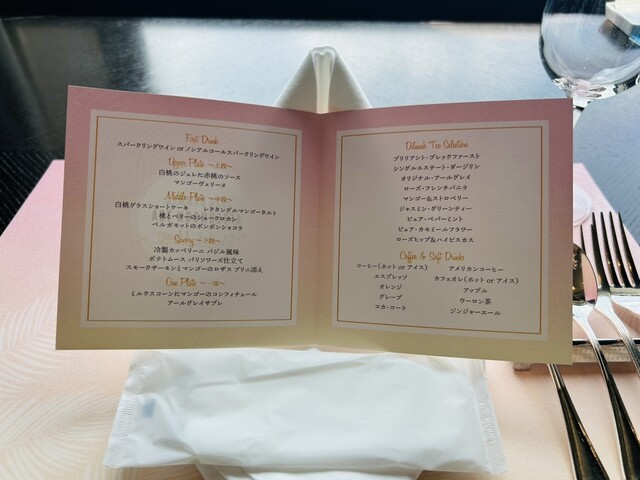 First Drink
スパークリングワイン or ノンアルコールスパークリングワイン
Upper Plate ～上段～
白桃のジュレに赤桃のソース
マンゴーヴェリーヌ
Middle Plate ～中段～
白桃グラスショートケーキ レクタングルマンゴータルト
桃とベリーのシュークロカン
ベルガモットのボンボンショコラ
Savory ～下段～
冷製カッペリーニ バジル風味
ポテトムース パリソワーズ仕立て
スモークサーモンとマンゴーのロザス ブリニ添え
One Plate ～一皿～
ミルクスコーンにマンゴーのコンフィチュール
アールグレイサブレ
Dilmah Tea Selection
ブリリアント・ブレックファースト
シングルエステート・ダージリン
オリジナル・アールグレイ
ローズ・フレンチバニラ
マンゴー&ストロベリー
ジャスミン・グリーンティー
ピュア・ペパーミント
ピュア・カモミールフラワー
ローズヒップ&ハイビスカス
Coffee & Soft Drinks
コーヒー(ホット or アイス) アメリカンコーヒー
エスプレッソ カフェオレ(ホット or アイス)
オレンジ アップル
グレープ ウーロン茶
コカ・コーラ ジンジャーエール